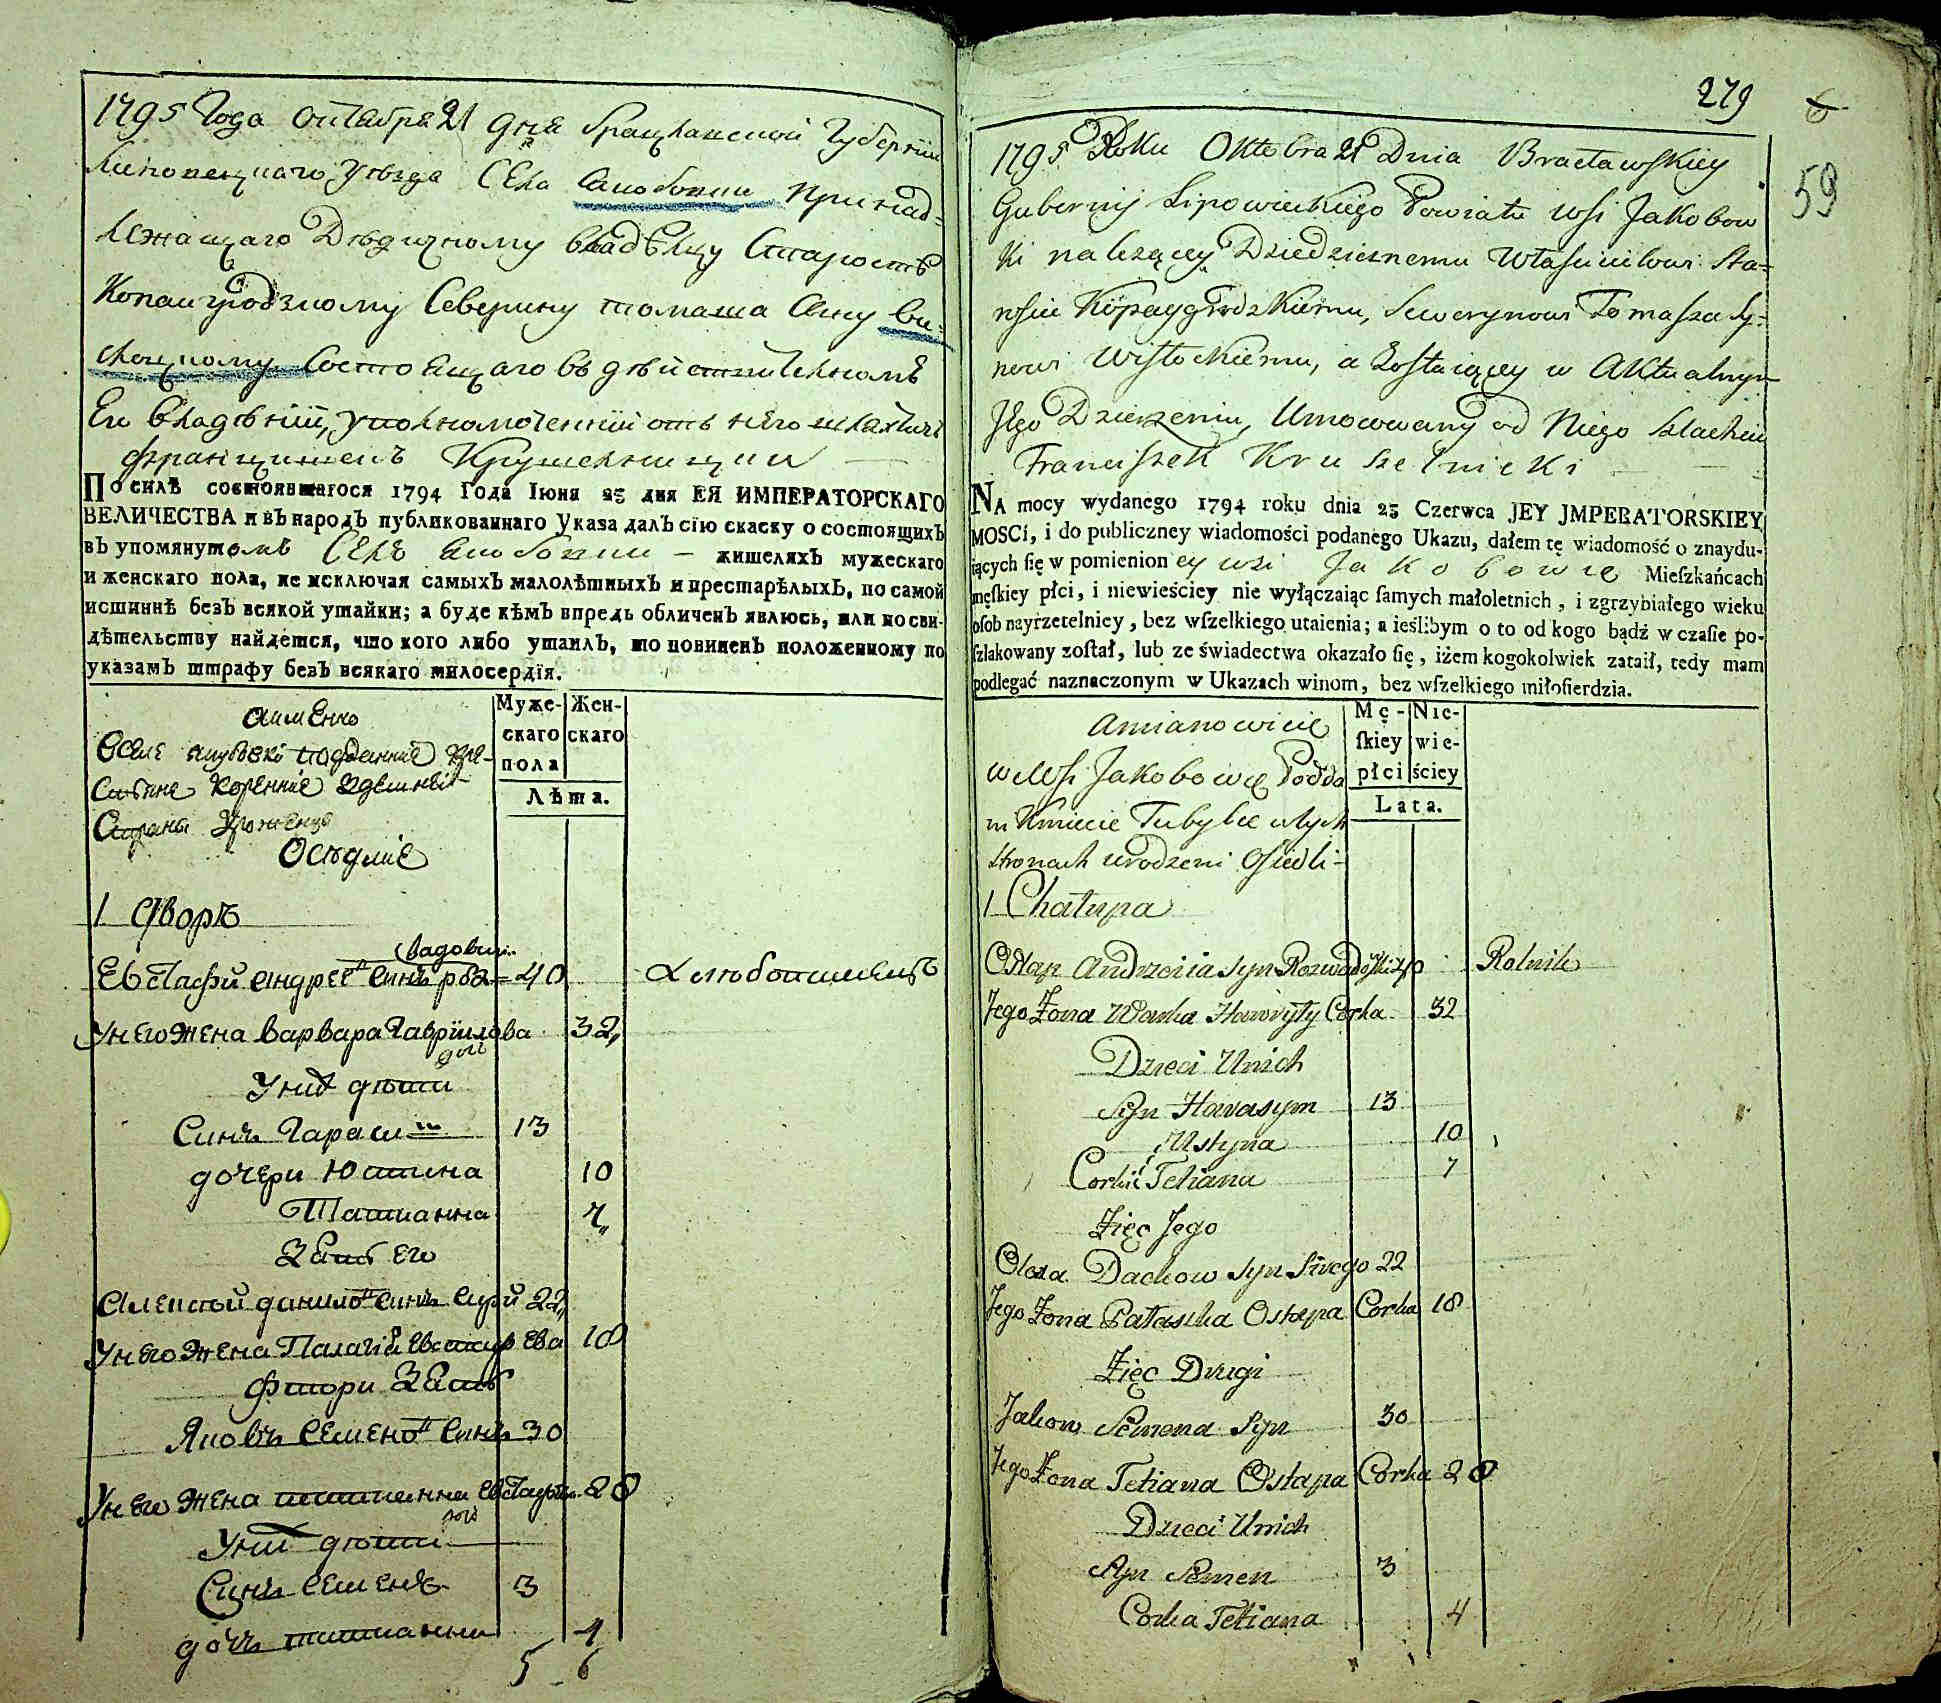 1795 Года Октября 21 дня Брацлавской Губернии
Липовецкаго уѣзда Села Якобовки принад-
лежащаго Дѣдичному владѣлцу Старостѣ
Копайгродзкому Северину Томаша Сину Ви-
слоцкому Состоящаго въ дѣйствителномъ
Ево владѣнии, уполномоченний отъ него шляхтичъ
францишекъ Крушелницки
ПО силѣ состоявшагося 1794 Года Iюня 23 дня ЕЯ ИМПЕРАТОРСКАГО
ВЕЛИЧЕСТВА и въ народъ публикованнаго Указа далъ сiю скаску о состоящихъ
въ упомянутомъ Селѣ Якобовки – жителяхъ мужескаго
и женскаго пола, не исключая самыхъ малолѣтныхъ и престарѣлыхъ, по самой
истиннѣ безъ всякой утайки; а буде кѣмъ впредь обличенъ явлюсь, или по сви-
дѣтельству найдется, что кого либо утаилъ, то повиненъ положенному по
указамъ штрафу безъ всякаго милосердiя.
Муже-
скаго
пола
Жен-
скаго
Лѣта.
Аименно
Въселе Якубовкi подданние
коренние здешней
Страны Уроженцы
Оседлие
1 дворъ
Евстафий Андреевъ Синъ Розвадовски 40
Хлебопашецъ
Унего жена Варвара Гаврилова дочь 32
Унихъ дѣти
Синъ Гарасим 13
дочери Юстина 10
Татианна 7
Зять его
Алексѣй данилов Синъ Сирй 22
Унего жена Палагия Евстафева 18
фтори Зять
Яковъ Семеновъ Синъ 30
Унего жена татианна Евстафева дочь 20
Унихъ дѣти
Синъ Семенъ 3
дочь татианна 4
5 6
279
59
1795 Roku Oktobra 21 Dnia Bracławskiey
Gubernij Lipowieckiego Powiatu wsi Jakobow
ki należącey Dziedzicznemu Właścicilowi Sta-
roście Kopaygrodzkiemu, Sewerynowi Tomasza Sy-
nowi Wisłockiemu, a Zostaiącey w Aktualnym
Jego Dzierzeniu, Umocowany od Niego Szlachcic
Franciszek Kruszelnicki
NA mocy wydanego 1794 roku dnia 23 Czerwca JEY JMPERATORSKIEY
MOSCi, i do publiczney wiadomości podanego Ukazu, dałem tę wiadomość o znaydu-
iących ſię w pomienioney wsi Jakobowie Mieſzkańcach
męſkiey płci, i niewieściey nie wyłączaiąc ſamych małoletnich, i zgrzybiałego wieku
oſob nayrzetelniey, bez wſzelkiego utaienia; a ieślibym o to od kogo bądź w czaſie po-
ſzlakowany zoſtał, lub ze świadectwa okazało ſię, iżem kogokolwiek zataił, tedy mam
podlegać naznaczonym w Ukazach winom, bez wſzelkiego miłoſierdzia.
Mę-
ſkiey
płci
Nie-
wie-
ściey
Lata.
Amianowicie
w Wsi Jakobowce Podda
ni Kmiecie Tubylce wtych
Stronach urodzeni Osiedli-
1 Chałupa
Ostap Andrzeia Syn Rozwadowski 40
Rolnik
Jego Żona Warka Hawryły Corka 32
Dzieci Unich
Syn Harasym 13
Ustyna 10
Corki Tetiana 7
Zięć Jego
Olexa Dackow Syn Sirego 22
Jego Żona Pałaszka Ostapa Corka 18
Zięć Drugi
Jakow Semena Syn 30
Jego Żona Tetiana Ostapa Corka 20
Dzieci Unich
Syn Semen 3
Corka Tetiana 4